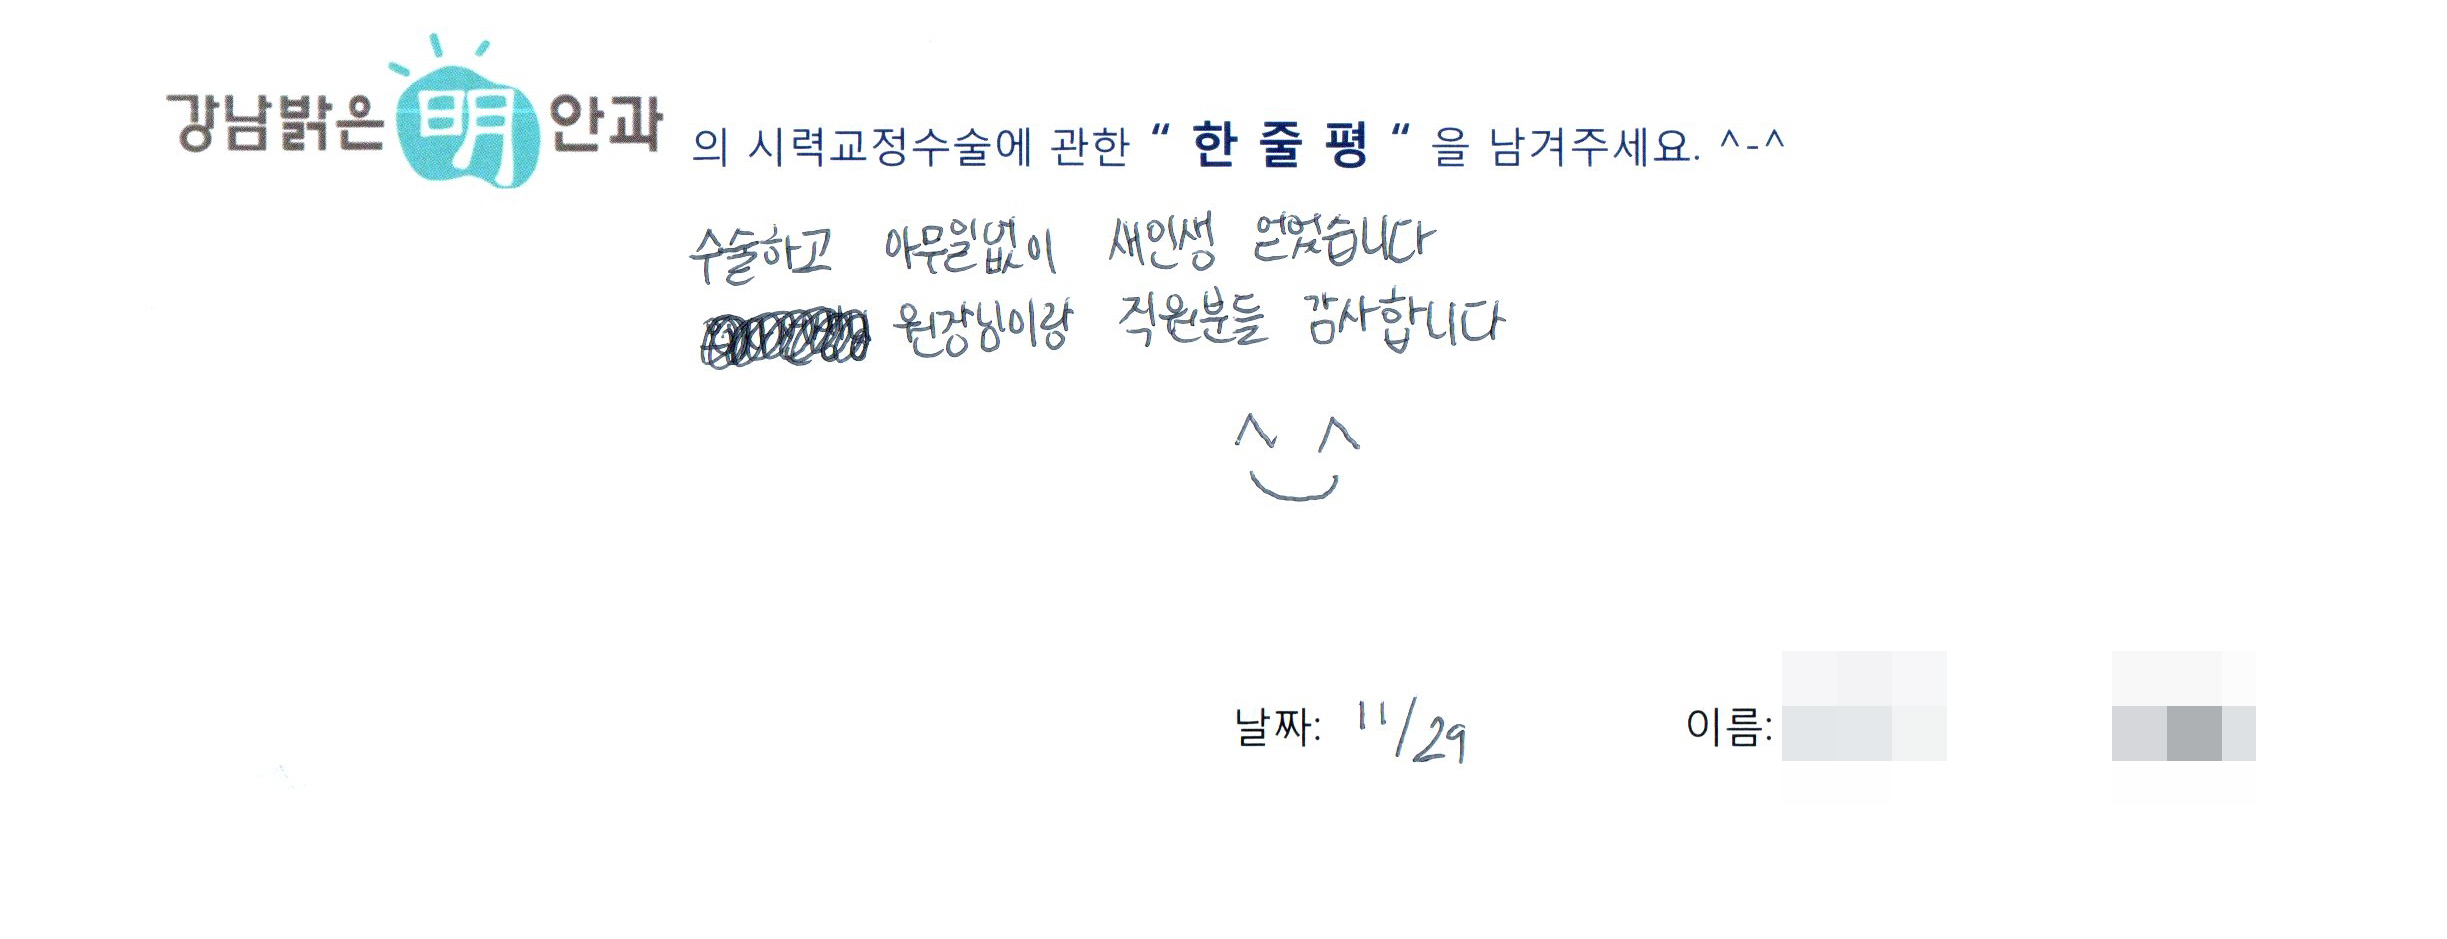 강남밝은 明 안과 의 시력교정수술에 관한 “ 한 줄 평 “ 을 남겨주세요. ^-^
수술하고 아무일없이 새인생 얻었습니다
원장님이랑 직원분들 감사합니다
날짜: 11/29 이름: